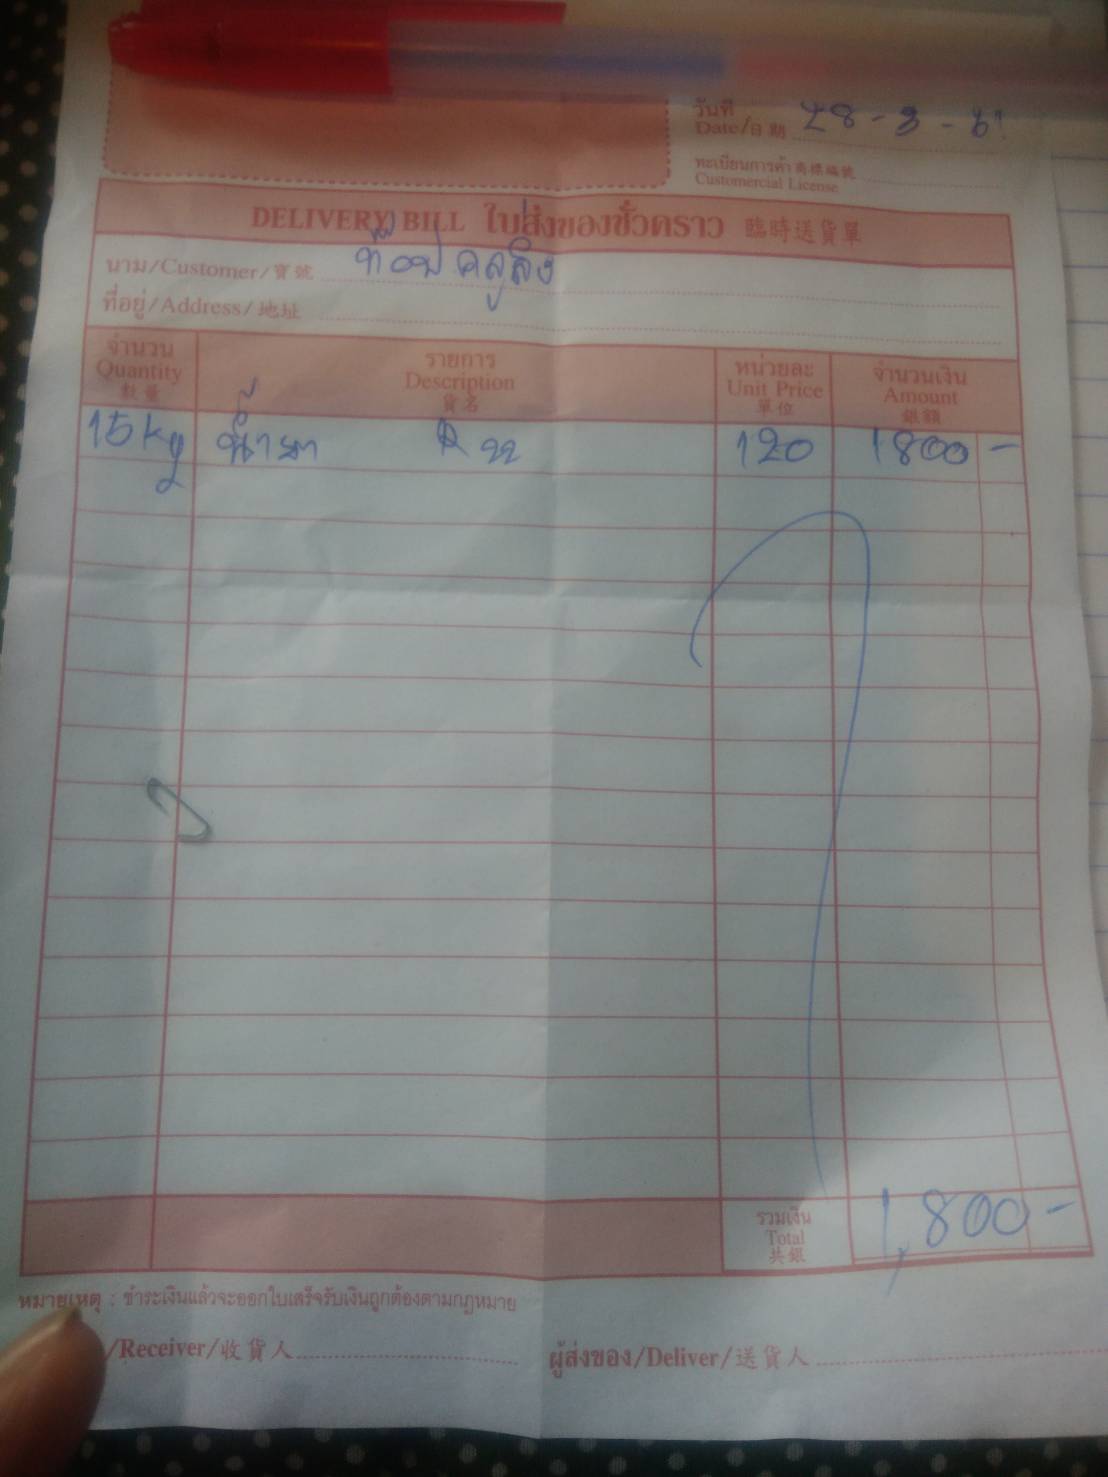 วันที่
Date/日期 28-3-61
ทะเบียนการค้า 商標編號
Customercial License
DELIVERY BILL ใบส่งของชั่วคราว 臨時送貨單
นาม/Customer/寶號 ท๊อป คลูลิ่ง
ที่อยู่/Address/地址
จำนวน รายการ หน่วยละ จำนวนเงิน
Quantity Description Unit Price Amount
數量 貨名 單位 銀額
15 kg น้ำยา R22 120 1800 -
รวมเงิน
Total 1,800 -
共銀
หมายเหตุ : ชำระเงินแล้วจะออกใบเสร็จรับเงินถูกต้องตามกฎหมาย
/Receiver/收貨人 ผู้ส่งของ/Deliver/送貨人